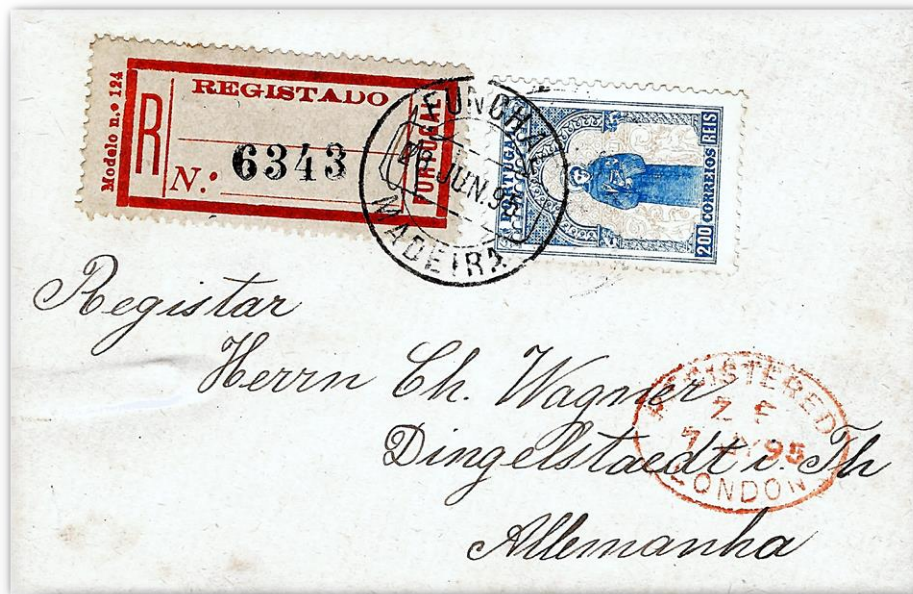 Modelo n.º 124
R
REGISTADO
N.º 6343
PORTUGAL
FUNCHAL
JUN.95
MADEIRA
200 CORREIOS REIS
Registar
Herrn Ch. Wagner
Dingelstaedt i. Th
Allemanha
REGISTERED
7 JY 95
LONDON